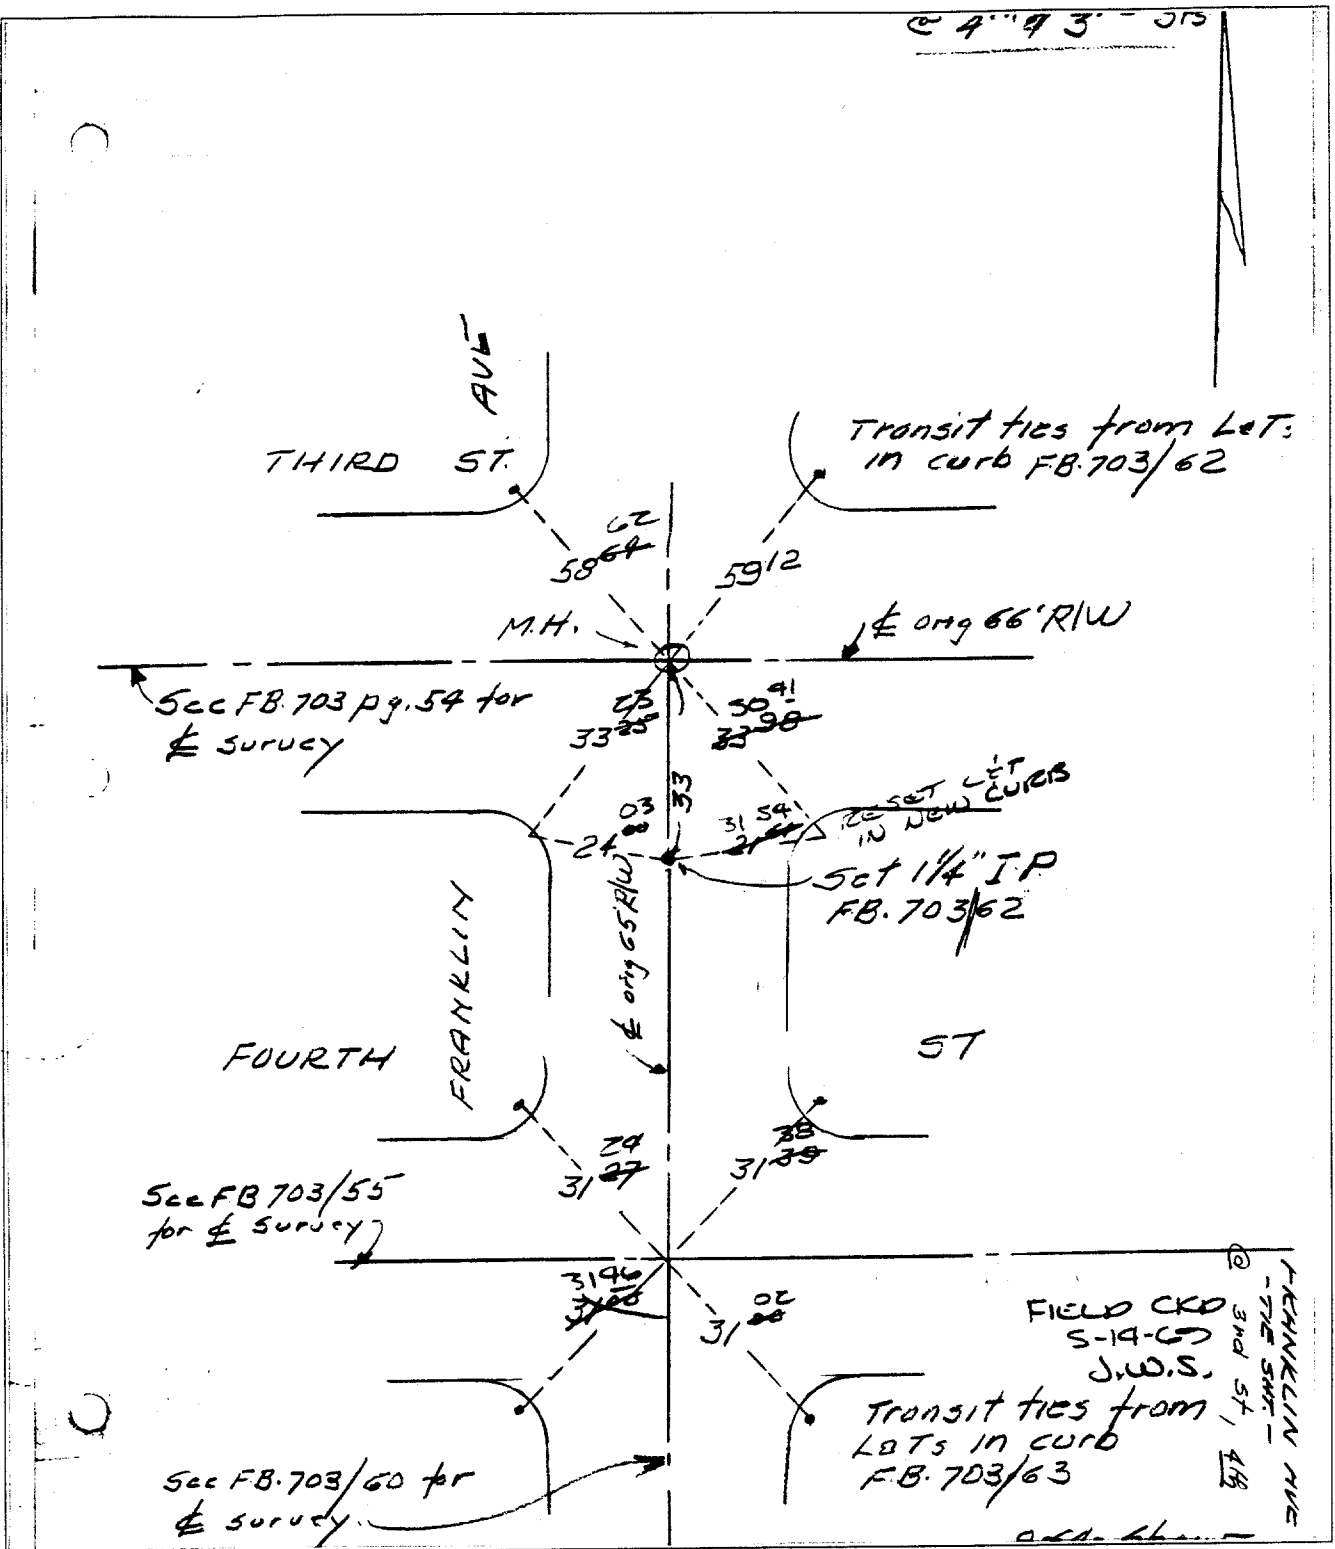 @ 4
AVE
THIRD ST.
Transit ties from L&T:
in curb FB.703/62
62
58 64
59 12
M.H.
℄ orig 66' R/W
See FB.703 pg.54 for
℄ survey
23
33 25
50 41
33 98
33
03
24 00
31 54
21
RESET L&T
IN NEW CURB
Set 1 1/4" I.P
FB.703/62
℄ orig 65 R/W
FRANKLIN
FOURTH
ST
24
31 27
38
31 39
See FB 703/55
for ℄ survey
31 46
02
31 00
FIELD CKD
J.W.S.
Transit ties from
L&Ts in curb
F.B. 703/63
See FB.703/60 for
℄ survey.
FRANKLIN AVE
- TIE SHT. -
@ 3rd St, 4th